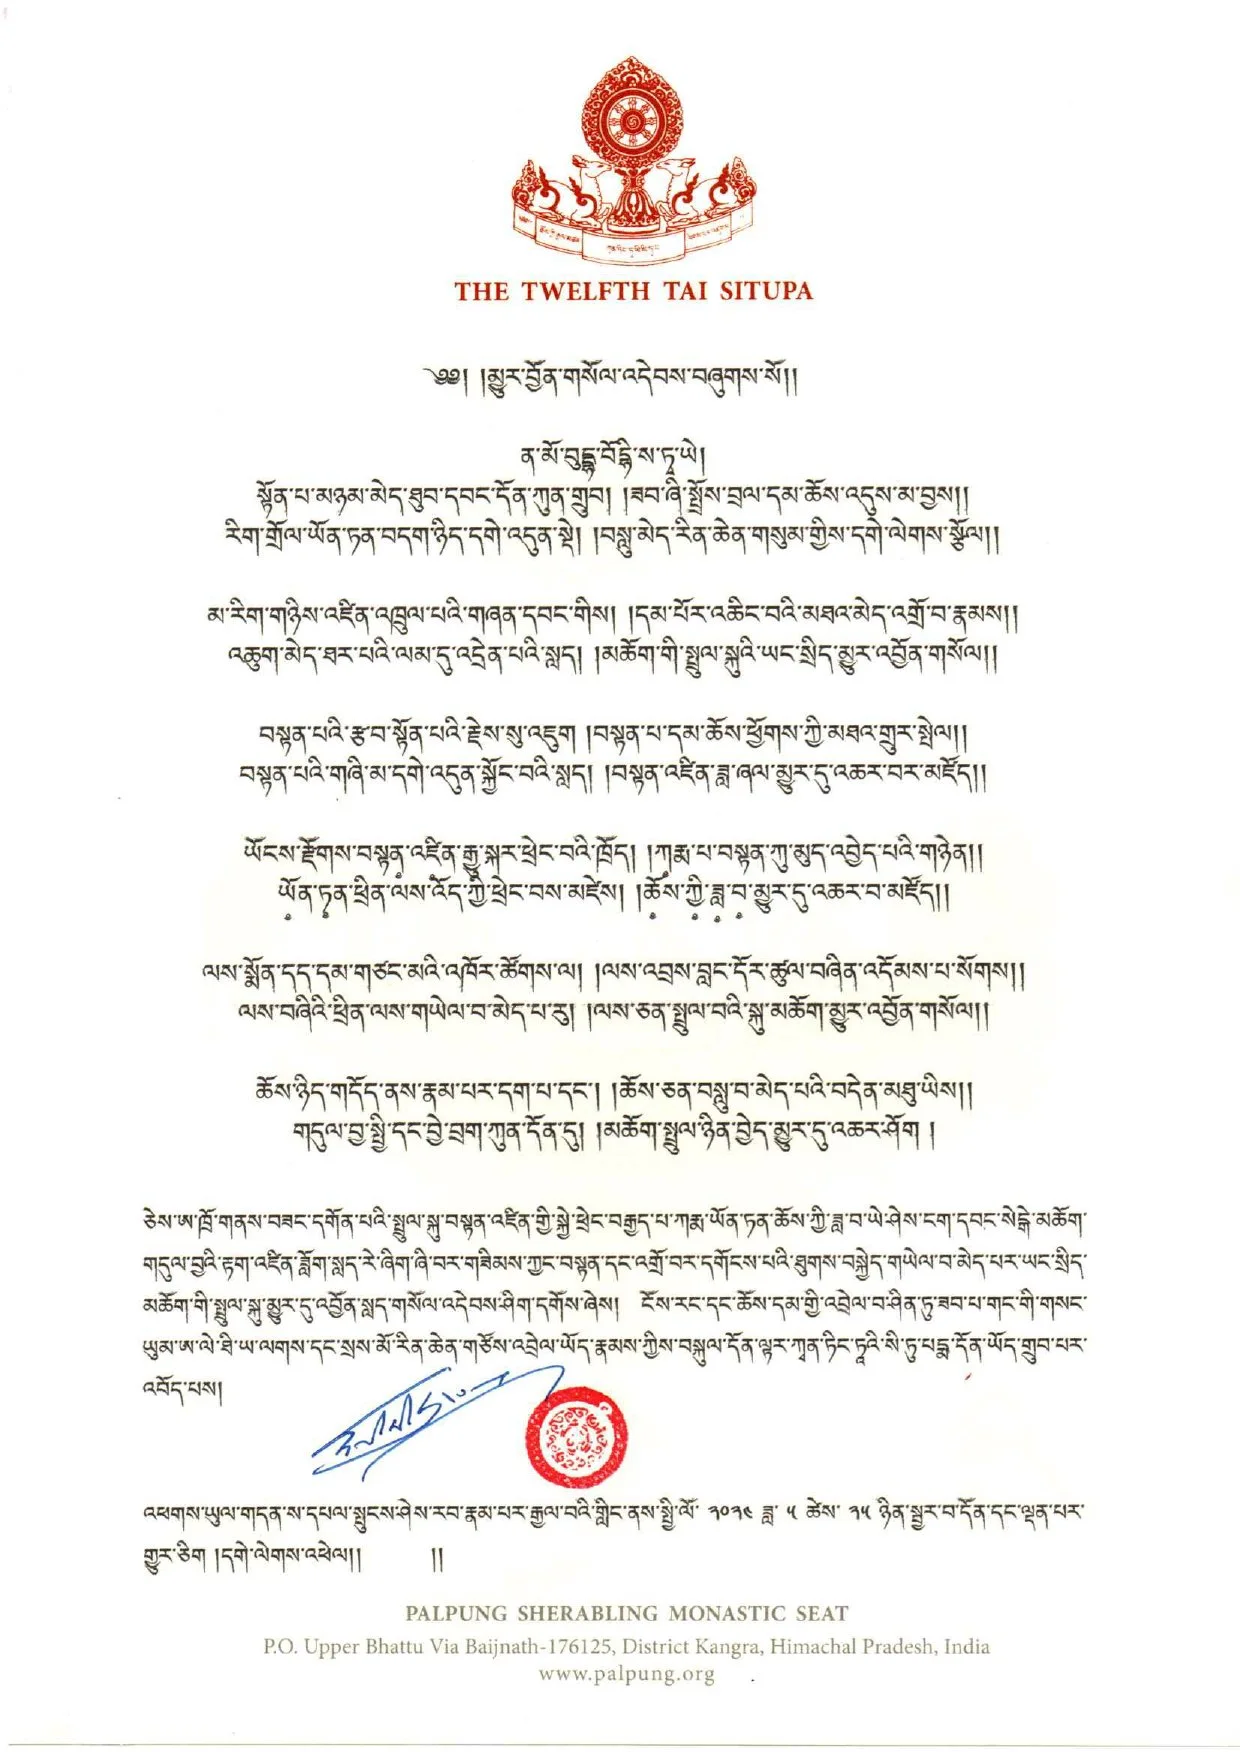 THE TWELFTH TAI SITUPA
༄༅། །མྱུར་བྱོན་གསོལ་འདེབས་བཞུགས་སོ།།
ན་མོ་བུདྡྷ་བོདྷི་ས་ཏྭ་ཡེ།
སྟོན་པ་མཉམ་མེད་ཐུབ་དབང་དོན་ཀུན་གྲུབ། །ཟབ་ཞི་སྤྲོས་བྲལ་དམ་ཆོས་འདུས་མ་བྱས།།
རིག་གྲོལ་ཡོན་ཏན་བདག་ཉིད་དགེ་འདུན་སྡེ། །བསླུ་མེད་རིན་ཆེན་གསུམ་གྱིས་དགེ་ལེགས་སྩོལ།།
མ་རིག་གཉིས་འཛིན་འཁྲུལ་པའི་གཞན་དབང་གིས། །དམ་པོར་འཆིང་བའི་མཐའ་མེད་འགྲོ་བ་རྣམས།།
འཆུག་མེད་ཐར་པའི་ལམ་དུ་འདྲེན་པའི་སླད། །མཆོག་གི་སྤྲུལ་སྐུའི་ཡང་སྲིད་མྱུར་འབྱོན་གསོལ།།
བསྟན་པའི་རྩ་བ་སྟོན་པའི་རྗེས་སུ་འཇུག །བསྟན་པ་དམ་ཆོས་ཕྱོགས་ཀྱི་མཐའ་གྲུར་སྤེལ།།
བསྟན་པའི་གཞི་མ་དགེ་འདུན་སྐྱོང་བའི་སླད། །བསྟན་འཛིན་ཟླ་ཞལ་མྱུར་དུ་འཆར་བར་མཛོད།།
ཡོངས་རྫོགས་བསྟན་འཛིན་རྒྱུ་སྐར་ཕྲེང་བའི་ཁྲོད། །ཀརྨ་པ་བསྟན་ཀུ་མུད་འབྱེད་པའི་གཉེན།།
ཡོན་ཏན་ཕྲིན་ལས་འོད་ཀྱི་ཕྲེང་བས་མཛེས། །ཆོས་ཀྱི་ཟླ་བ་མྱུར་དུ་འཆར་བ་མཛོད།།
ལས་སྨོན་དད་དམ་གཙང་མའི་འཁོར་ཚོགས་ལ། །ལས་འབྲས་བླང་དོར་ཚུལ་བཞིན་འདོམས་པ་སོགས།།
ལས་བཞིའི་ཕྲིན་ལས་གཡེལ་བ་མེད་པ་རུ། །ལས་ཅན་སྤྲུལ་བའི་སྐུ་མཆོག་མྱུར་འབྱོན་གསོལ།།
ཆོས་ཉིད་གདོད་ནས་རྣམ་པར་དག་པ་དང་། །ཆོས་ཅན་བསླུ་བ་མེད་པའི་བདེན་མཐུ་ཡིས།།
གདུལ་བྱ་སྤྱི་དང་བྱེ་བྲག་ཀུན་དོན་དུ། །མཆོག་སྤྲུལ་ཉིན་བྱེད་མྱུར་དུ་འཆར་ཤོག །
ཅེས་ཨ་ཁྲོ་གནས་བཟང་དགོན་པའི་སྤྲུལ་སྐུ་བསྟན་འཛིན་གྱི་སྐྱེ་ཕྲེང་བརྒྱད་པ་ཀརྨ་ཡོན་ཏན་ཆོས་ཀྱི་ཟླ་བ་ཡེ་ཤེས་ངག་དབང་སེངྒེ་མཆོག་
གདུལ་བྱའི་རྟག་འཛིན་ཟློག་སླད་རེ་ཞིག་ཞི་བར་གཟིམས་ཀྱང་བསྟན་དང་འགྲོ་བར་དགོངས་པའི་ཐུགས་བསྐྱེད་གཡེལ་བ་མེད་པར་ཡང་སྲིད་
མཆོག་གི་སྤྲུལ་སྐུ་མྱུར་དུ་འབྱོན་སླད་གསོལ་འདེབས་ཤིག་དགོས་ཞེས། ངོས་རང་དང་ཆོས་དམ་གྱི་འབྲེལ་བ་ཤིན་ཏུ་ཟབ་པ་གང་གི་གསང་
ཡུམ་ཨ་ལེ་ཐི་ཡ་ལགས་དང་སྲས་མོ་རིན་ཆེན་གཙོས་འབྲེལ་ཡོད་རྣམས་ཀྱིས་བསྐུལ་དོན་ལྟར་ཀྭན་ཏིང་ཏཱའི་སི་ཏུ་པདྨ་དོན་ཡོད་གྲུབ་པར་
འབོད་པས།
འཕགས་ཡུལ་གདན་ས་དཔལ་སྤུངས་ཤེས་རབ་རྣམ་པར་རྒྱལ་བའི་གླིང་ནས་སྤྱི་ལོ་ ༢༠༢༤ ཟླ་ ༥ ཚེས་ ༢༥ ཉིན་སྦྱར་བ་དོན་དང་ལྡན་པར་
གྱུར་ཅིག །དགེ་ལེགས་འཕེལ།། །།
PALPUNG SHERABLING MONASTIC SEAT
P.O. Upper Bhattu Via Baijnath-176125, District Kangra, Himachal Pradesh, India
www.palpung.org